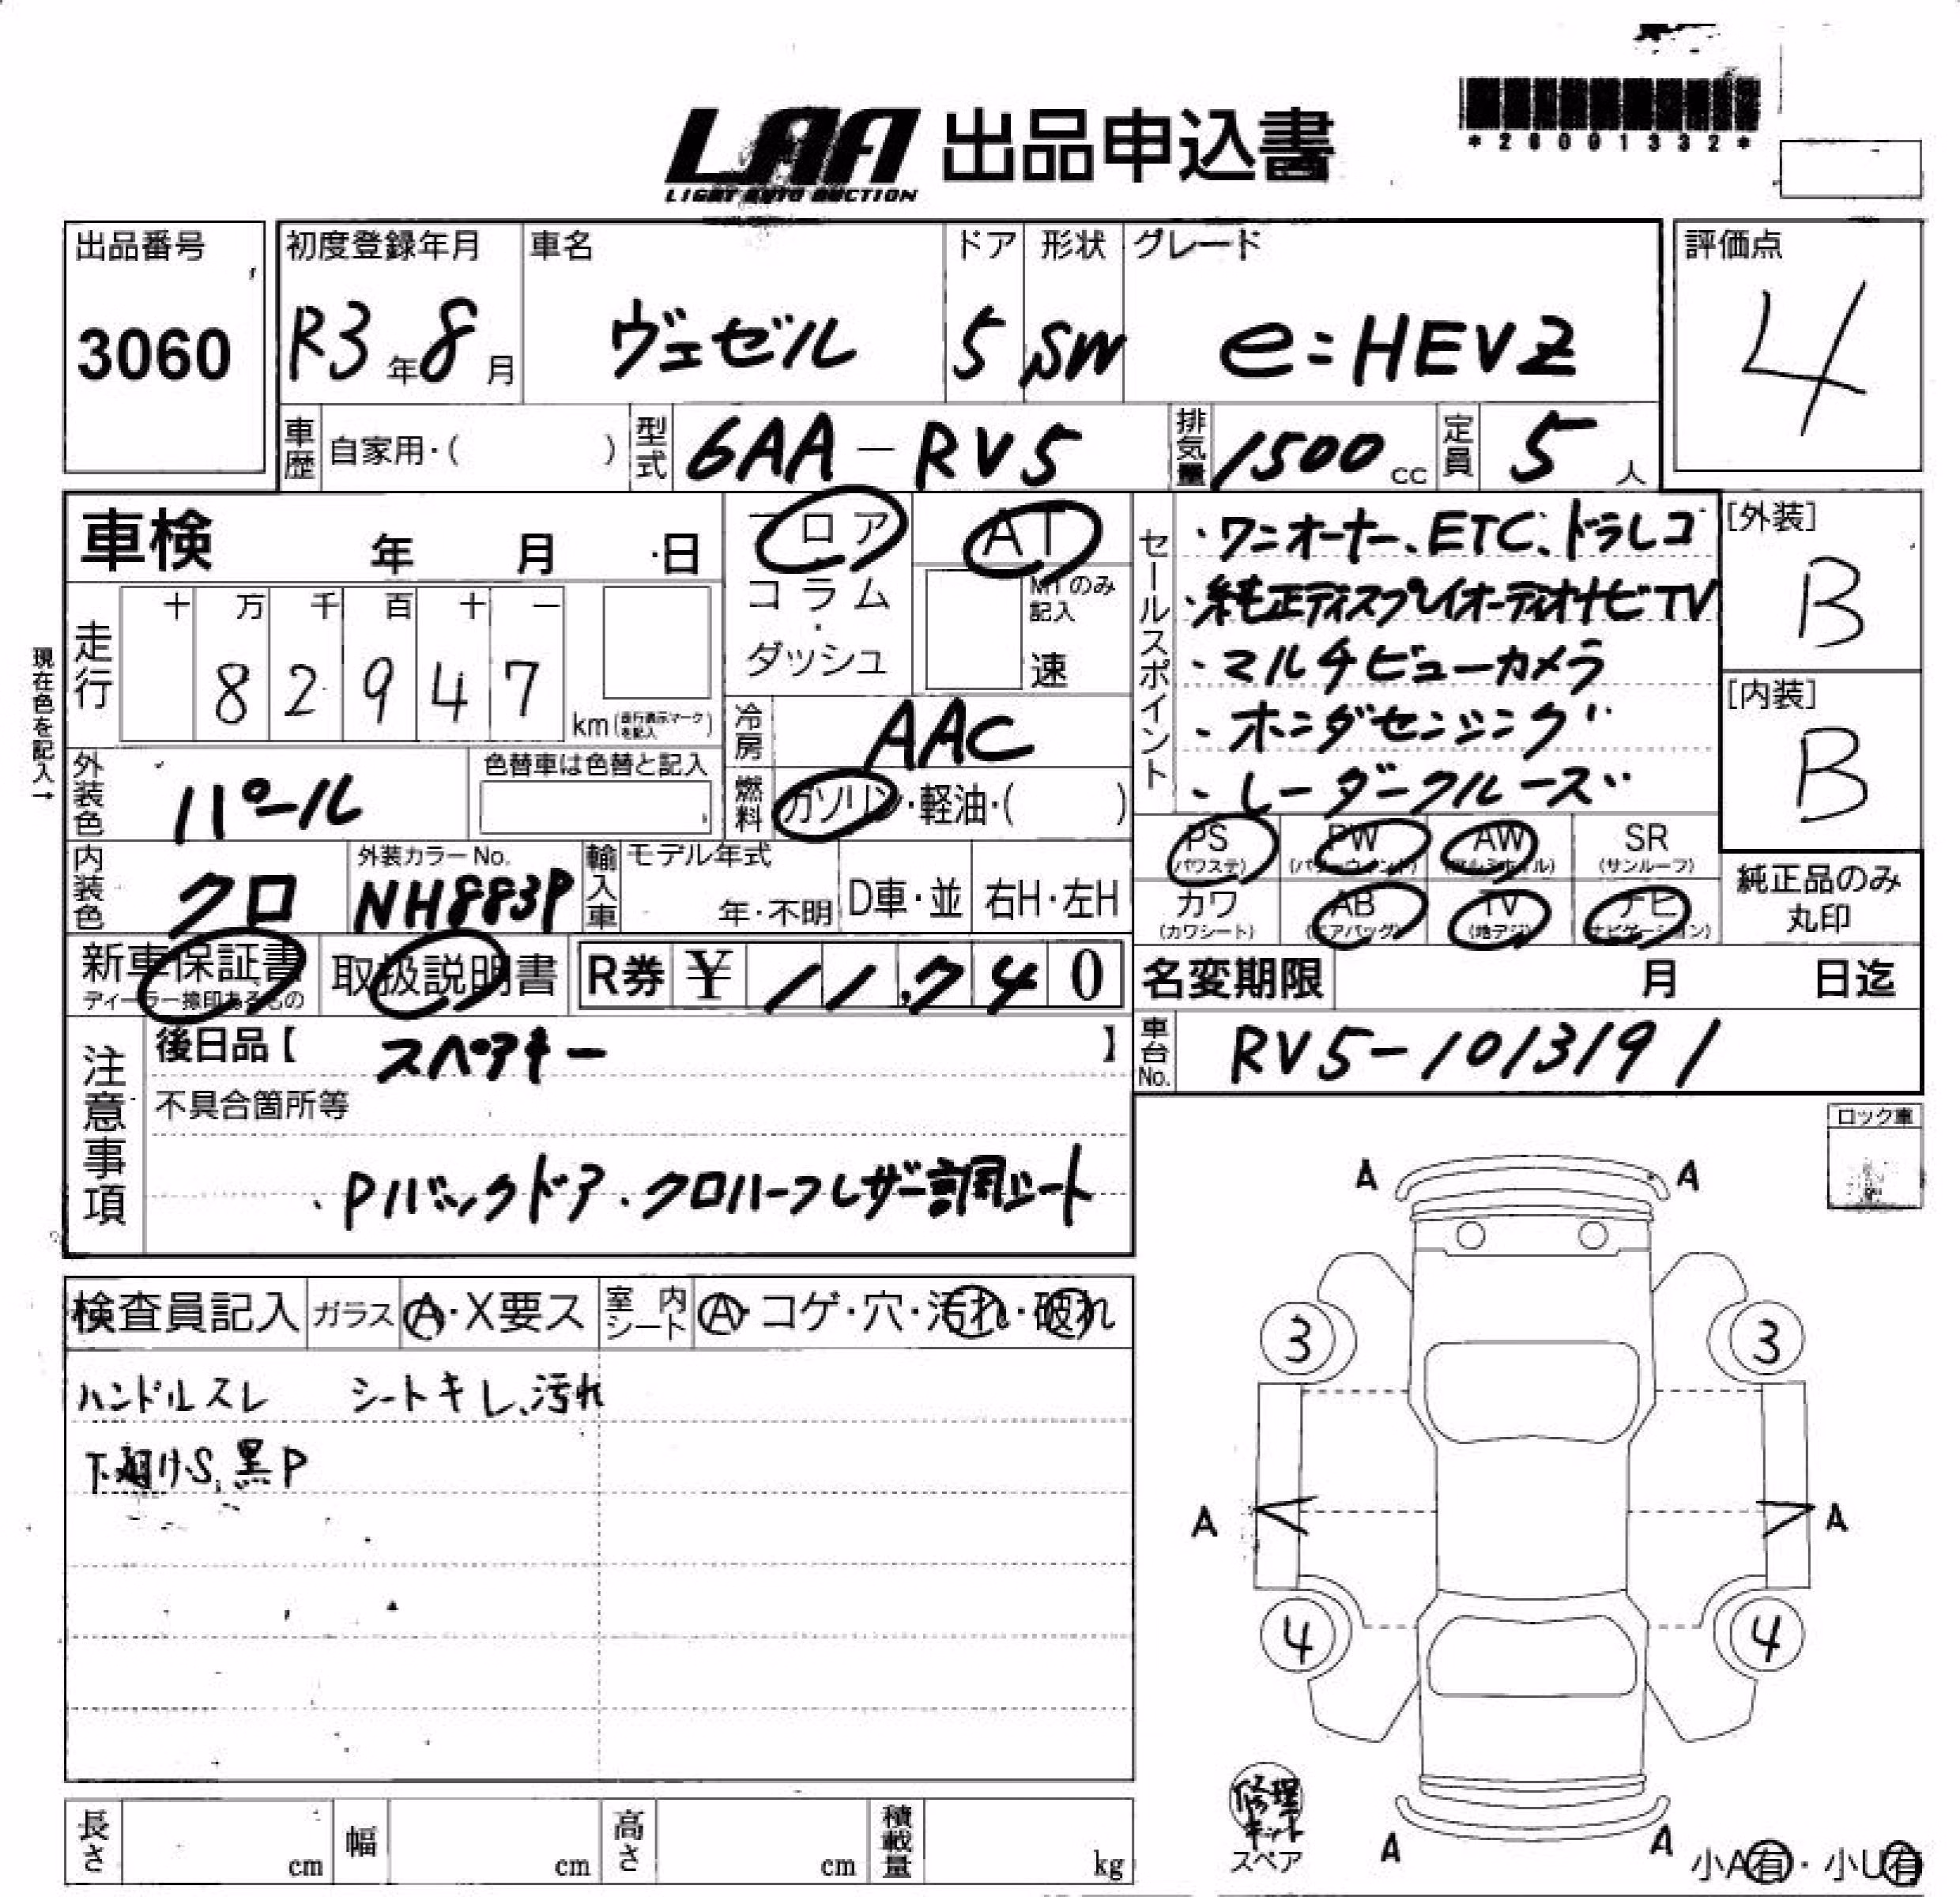 LAA 出品申込書
LIGHT AUTO AUCTION
*26001332*
出品番号
3060
初度登録年月
R3年8月
車名
ヴェゼル
ドア
5
形状
SW
グレード
e:HEVZ
評価点
4
車歴 自家用・( )
型式 6AA-RV5
排気量 1500cc
定員 5人
車検 年 月 日
フロア
コラム
・
ダッシュ
AT
MTのみ記入
速
セールスポイント
・ワンオーナー、ETC、ドラレコ
・純正ディスプレイオーディオナビTV
・マルチビューカメラ
・ホンダセンシング
・レーダークルーズ
[外装]
B
[内装]
B
現在色を記入→
走行 十 万 千 百 十 一
8 2 9 4 7 km(走行表示マークを記入)
冷房 AAC
燃料 ガソリン・軽油・( )
外装色 パール
色替車は色替と記入
内装色 クロ
外装カラーNo.
NH883P
輸入車 モデル年式
年・不明
D車・並
右H・左H
PS (パワステ)
PW (パワーウインド)
AW (アルミホイル)
SR (サンルーフ)
カワ (カワシート)
AB (エアバッグ)
TV (地デジ)
ナビ (ナビゲーション)
純正品のみ丸印
新車保証書
ディーラー捺印あるもの
取扱説明書
R券 ¥11,740
名変期限 月 日迄
車台No. RV5-1013191
注意事項
後日品【 スペアキー 】
不具合箇所等
・Pバックドア・クロハーフレザー調シート
ロック車
検査員記入 ガラス A・X要ス 室内シート A・コゲ・穴・汚れ・破れ
ハンドルスレ シートキレ、汚れ
下廻りS、黒P
A A
3 3
A A
4 4
A A
修理キット
スペア
小A有・小U有
長さ cm 幅 cm 高さ cm 積載量 kg